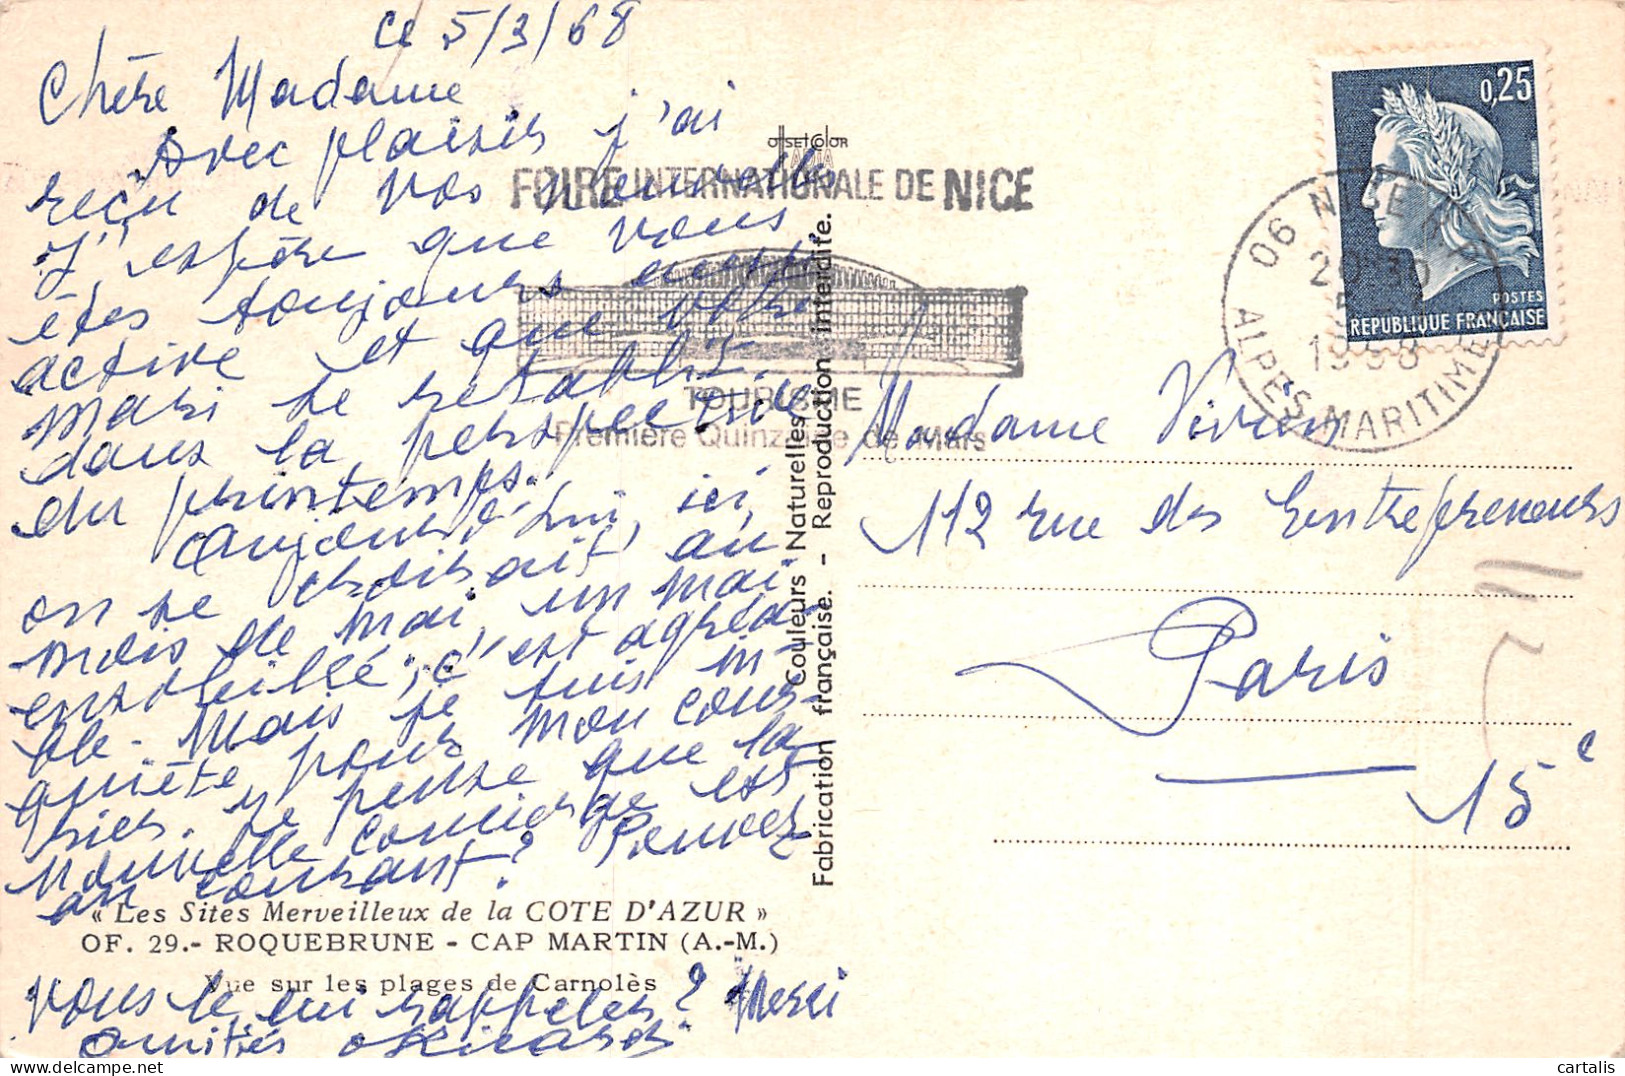 ce 5/3/68
Chère Madame
Avec plaisir j'ai
reçu de vos nouvelles
J'espère que vous
êtes toujours aussi
active et que votre
mari se rétablit
dans la perspective
du printemps.
Aujourd'hui, ici,
on se croirait au
mois de mai, un mai
ensoleillé, c'est agréa-
ble. Mais je suis in-
quiète pour mon cour-
rier. Je pense que la
nouvelle concierge est
au courant? Pouvez
vous le lui rappeler? Merci
Amitiés
« Les Sites Merveilleux de la COTE D'AZUR »
OF. 29.- ROQUEBRUNE - CAP MARTIN (A.-M.)
Vue sur les plages de Carnolès
OFFSETCOLOR
FOIRE INTERNATIONALE DE NICE
TOURISME
Première Quinzaine de Mars
Fabrication française. - Reproduction interdite.
Couleurs Naturelles
0,25
POSTES
REPUBLIQUE FRANÇAISE
06 NICE
1968
ALPES-MARITIMES
Madame Vivien
112 rue des Entrepreneurs
Paris
15e
cartalis.delcampe.net